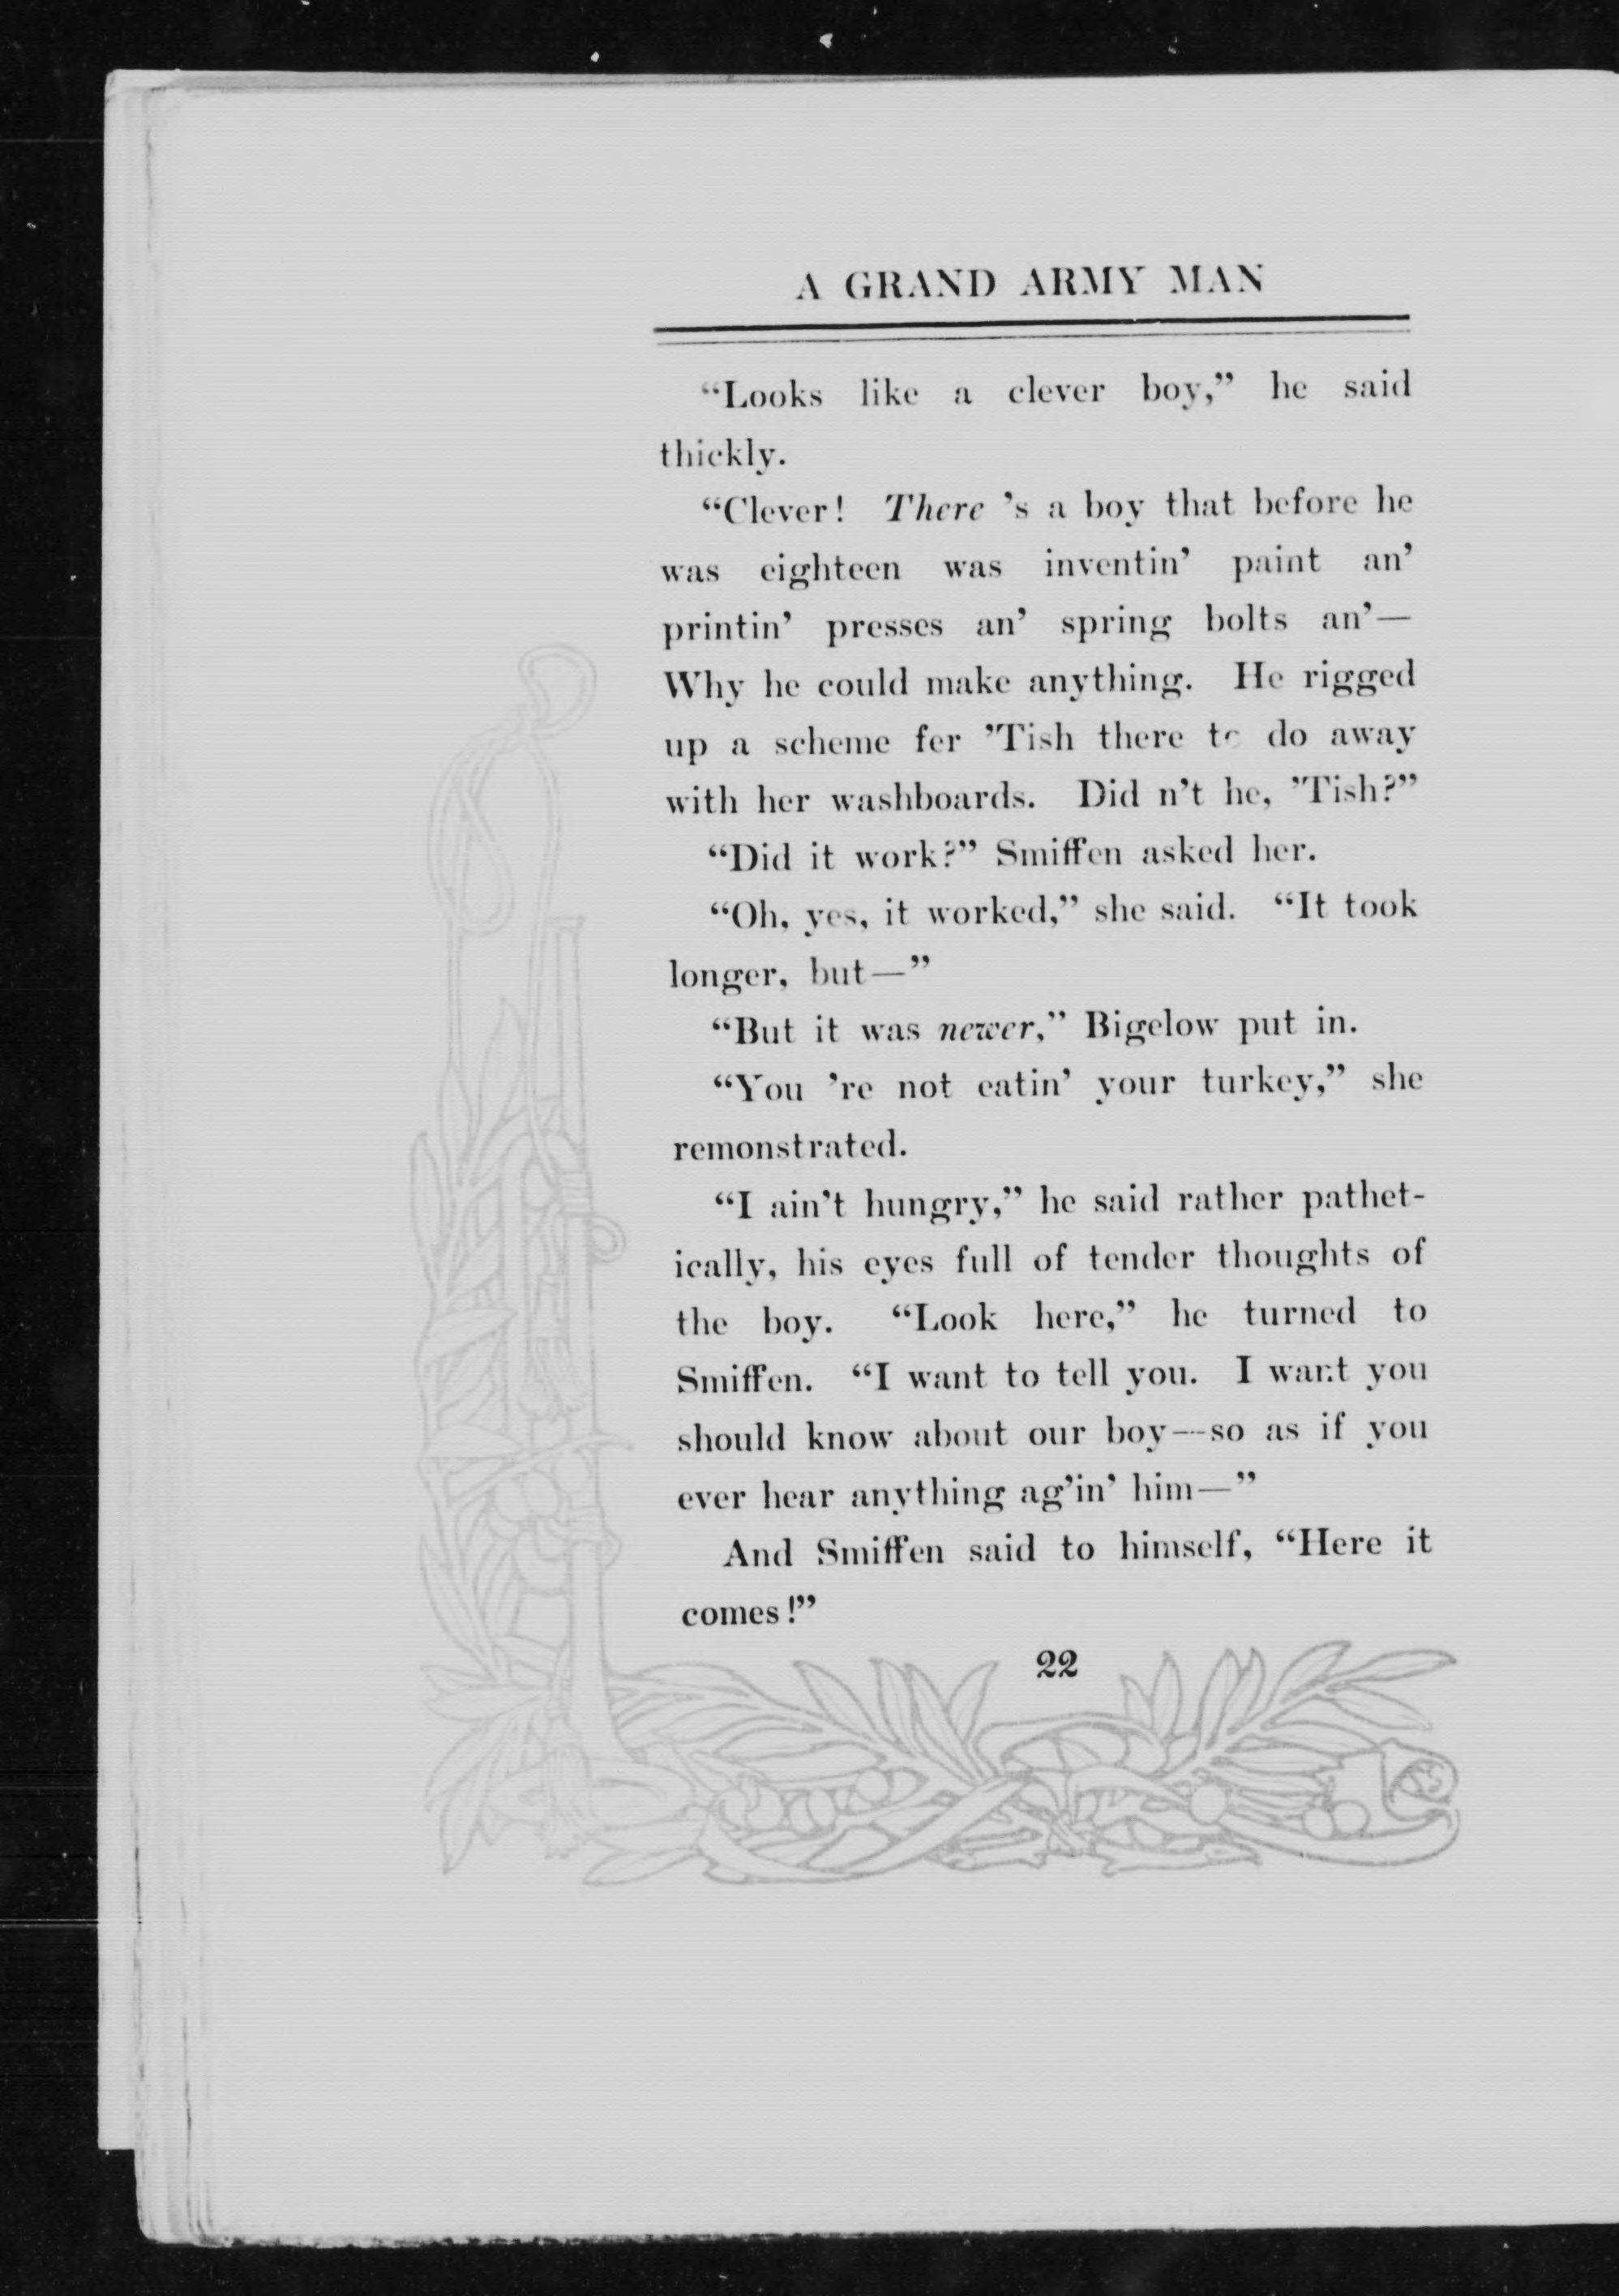 A GRAND ARMY MAN
“Looks like a clever boy,” he said
thickly.
“Clever! There ’s a boy that before he
was eighteen was inventin’ paint an’
printin’ presses an’ spring bolts an’—
Why he could make anything. He rigged
up a scheme fer ’Tish there to do away
with her washboards. Did n’t he, ’Tish?”
“Did it work?” Smiffen asked her.
“Oh, yes, it worked,” she said. “It took
longer, but—”
“But it was newer,” Bigelow put in.
“You ’re not eatin’ your turkey,” she
remonstrated.
“I ain’t hungry,” he said rather pathet-
ically, his eyes full of tender thoughts of
the boy. “Look here,” he turned to
Smiffen. “I want to tell you. I want you
should know about our boy—so as if you
ever hear anything ag’in’ him—”
And Smiffen said to himself, “Here it
comes!”
22